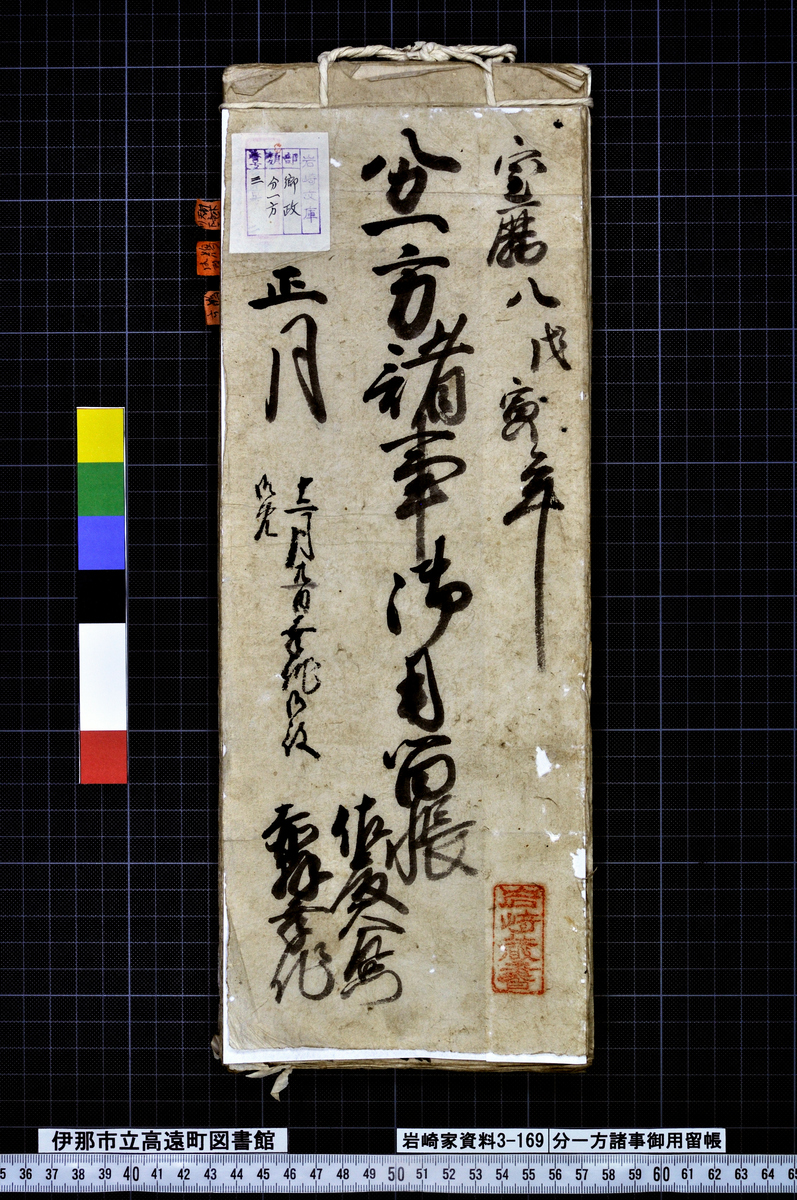 宝暦八戊寅年
分一方諸事御用留帳
正月
十二月九日幸作
幸作
岩崎蔵書
岩崎文庫
部 郷政
類 分一方
三
伊那市立高遠町図書館
岩崎家資料3-169
分一方諸事御用留帳
5 36 37 38 39 40 41 42 43 44 45 46 47 48 49 50 51 52 53 54 55 56 57 58 59 60 61 62 63 64 65